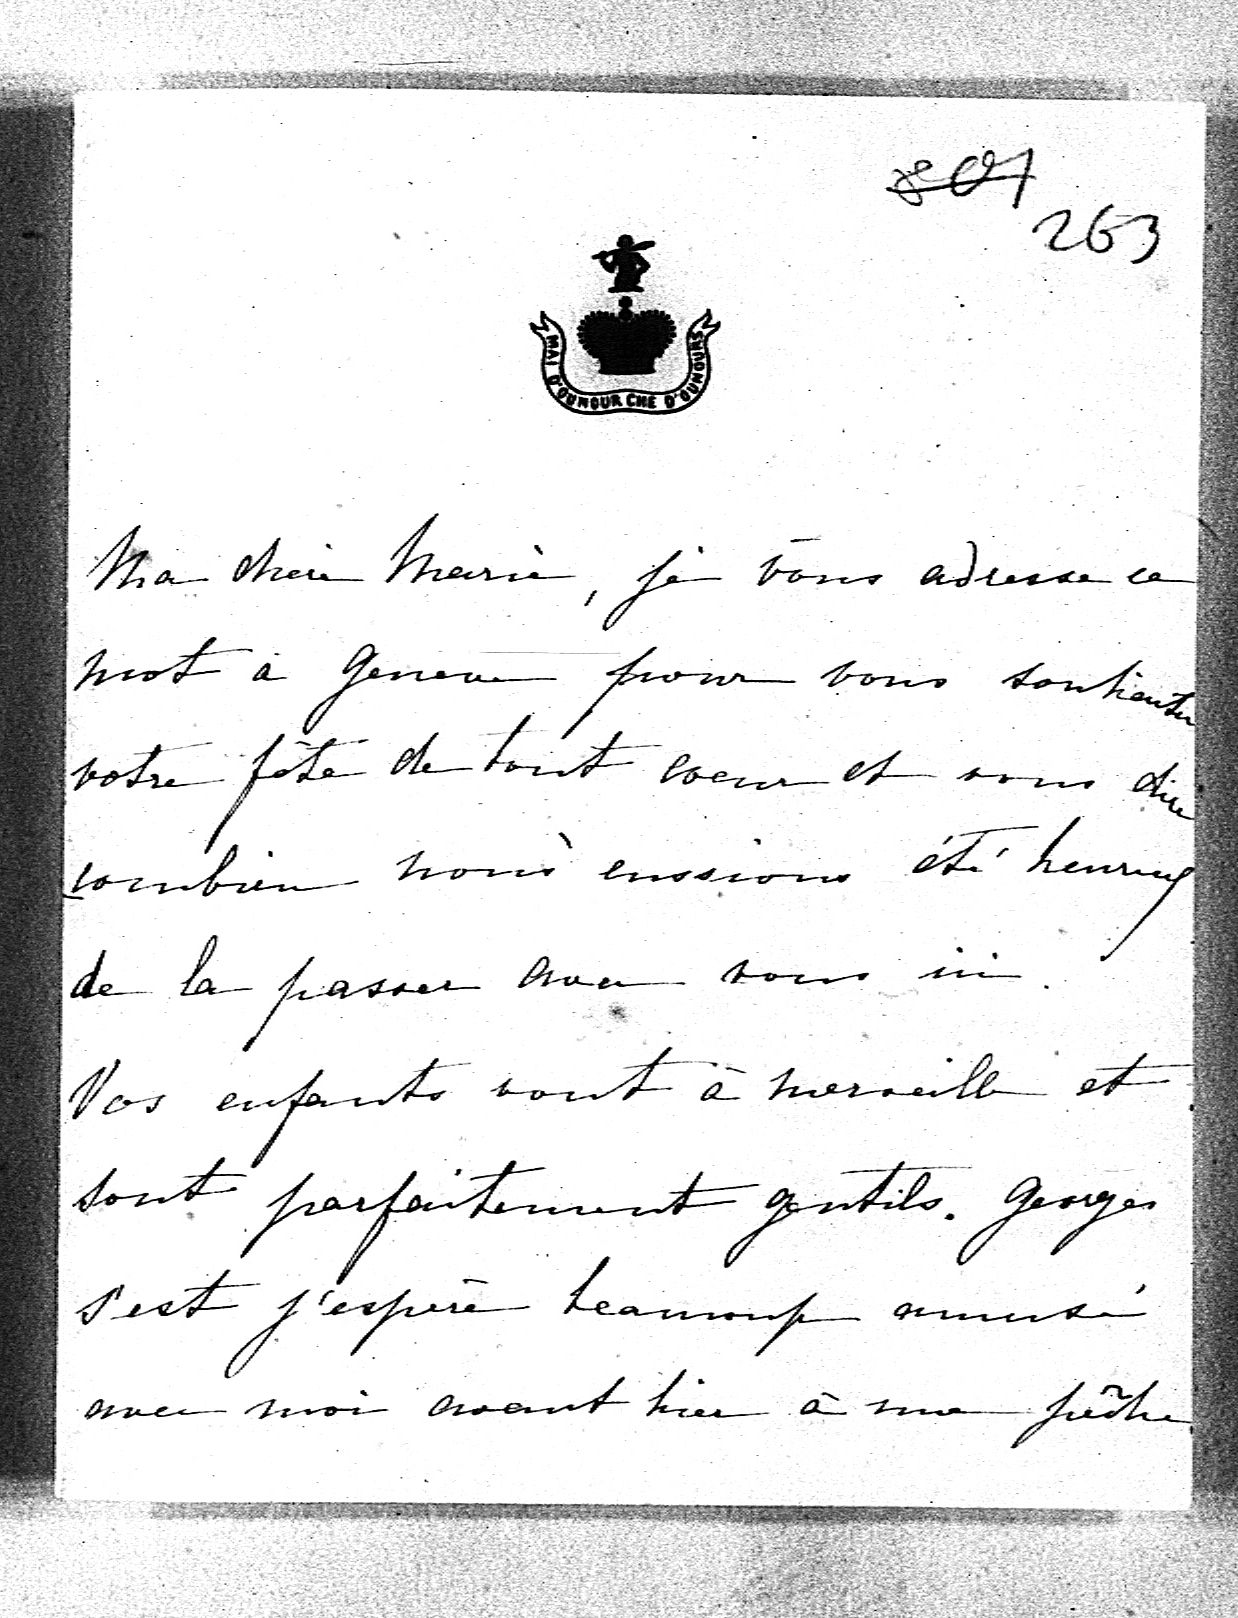 801
263
MAI D'OUNOUR CHE D'OUNOURS
Ma chère Marie, je vous adresse ce
mot à Geneve pour vous souhaiter
votre fête de tout coeur et vous dire
combien nous eussions été heureux
de la passer avec vous ici.
Vos enfants vont à merveille et
sont parfaitement gentils. Georges
s'est j'espère beaucoup amusé
avec moi avant hier à une pêche